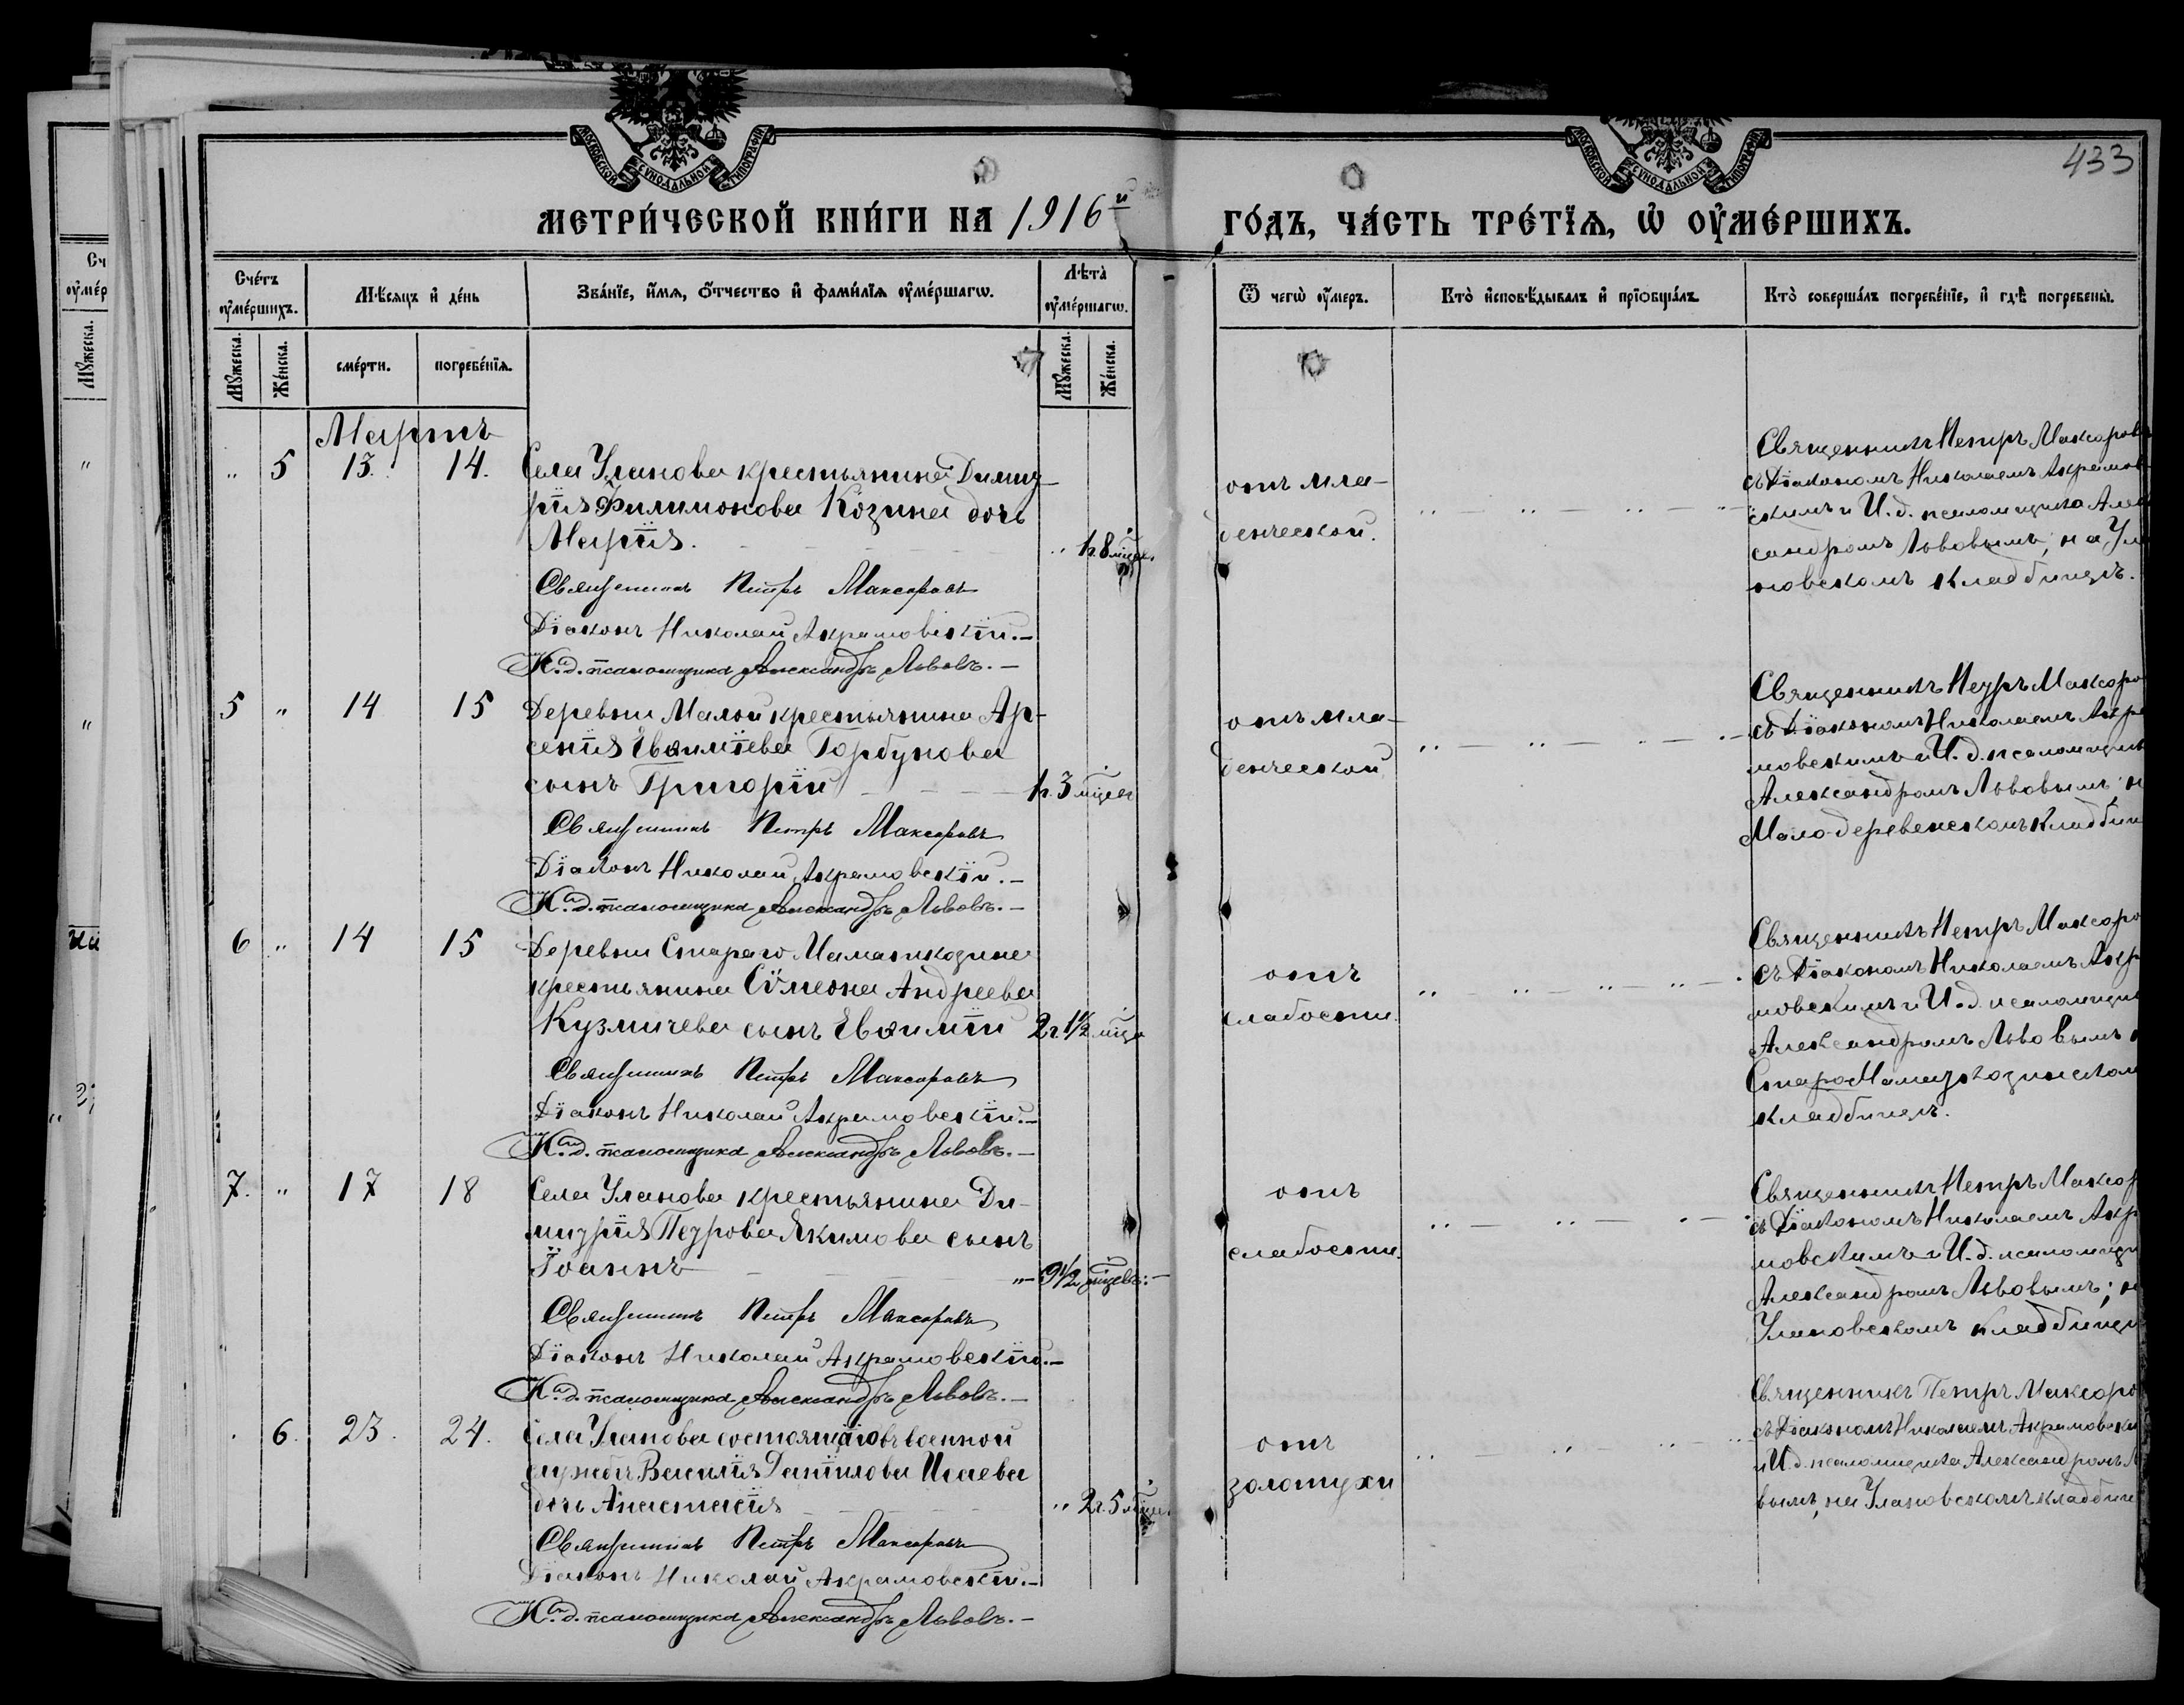 433
МОСКОВСКОЙ СѴНОДАЛЬНОЙ ТИПОГРАФІИ
МОСКОВСКОЙ СѴНОДАЛЬНОЙ ТИПОГРАФІИ
МЕТРИ́ЧЕСКОЙ КНИ́ГИ НА 1916й ГО́ДЪ, ЧА́СТЬ ТРЕ́ТЇѦ, Ѡ ОУМЕ́РШИХЪ.
Сче́тъ оуме́ршихъ.
Мѣ́сяцъ и де́нь
Зва́нїе, и́мя, о́тчество и фами́лїя оуме́ршагѡ.
Лѣта̀ оуме́ршагѡ.
Ѿ чегѡ̀ оу́меръ.
Кто̀ исповѣ́дывалъ и прїобща́лъ
Кто̀ соверша́лъ погребе́нїе, и гдѣ̀ погребены̀.
Мꙋ́жеска.
Же́нска.
сме́рти.
погребе́нїя.
Мꙋ́жеска.
Же́нска.
Мартъ
" 5 13. 14.
Села Уланова крестьянина Димит-
рія Филимонова Козина дочь
Марія. " 1 г. 8 мцев.
Священникъ Петръ Максоровъ
Діаконъ Николай Акрамовскій.-
И. д. псаломщика Александръ Львовъ.-
отъ мла-
денческой.
Священникъ Петръ Максоровъ
съ Діакономъ Николаемъ Акрамов-
скимъ и И. д. псаломщика Алек
сандромъ Львовымъ, на Ула
новскомъ кладбищѣ.
5 " 14 15
Деревни Малой крестьянина Ар-
сенія Евѳиміева Горбунова
сынъ Григорій 1 г. 3 мцев
Священникъ Петръ Максоровъ
Діаконъ Николай Акрамовскій.-
И. д. псаломщика Александръ Львовъ.-
отъ мла-
денческой
Священникъ Петръ Максоро
съ Діакономъ Николаемъ Акра
мовскимъ и И. д. псаломщик
Александромъ Львовымъ; н
Мало-деревенскомъ кладбищ
6 " 14 15
Деревни Стараго Маматкозина
крестьянина Сѵмеона Андреева
Кузмичева сынъ Евѳимій 2 г. 1½ мца
Священникъ Петръ Максоровъ
Діаконъ Николай Акрамовскій.-
И. д. псаломщика Александръ Львовъ.-
отъ
слабости.
Священникъ Петръ Максоро
съ Діакономъ Николаемъ Акр
мовскимъ и И. д. псаломщик
Александромъ Львовымъ н
СтароМаматкозинском
кладбищѣ.
7. " 17 18
Села Уланова крестьянина Ди-
митрія Петрова Якимова сынъ
Іоаннъ " - 9½ мцевъ.-
Священникъ Петръ Максоровъ
Діаконъ Николай Акрамовскій.-
И. д. псаломщика Александръ Львовъ.-
отъ
слабости.
Священникъ Петръ Максор
съ Діакономъ Николаемъ Акр
мовскимъ и И. д. псаломщи
Александромъ Львовымъ; н
Улановскомъ кладбищѣ
6. 23. 24.
Села Уланова состоящаго въ военной
службѣ Василія Даніилова Исаева
дочь Анастасія " 2 г. 5 мцев.
Священникъ Петръ Максоровъ
Діаконъ Николай Акрамовскій.-
И. д. псаломщика Александръ Львовъ.-
отъ
золотухи
Священникъ Петръ Максоро
съ Діакономъ Николаемъ Акрамовски
и И. д. псаломщика Александромъ Л
вымъ, на Улановскомъ кладбище